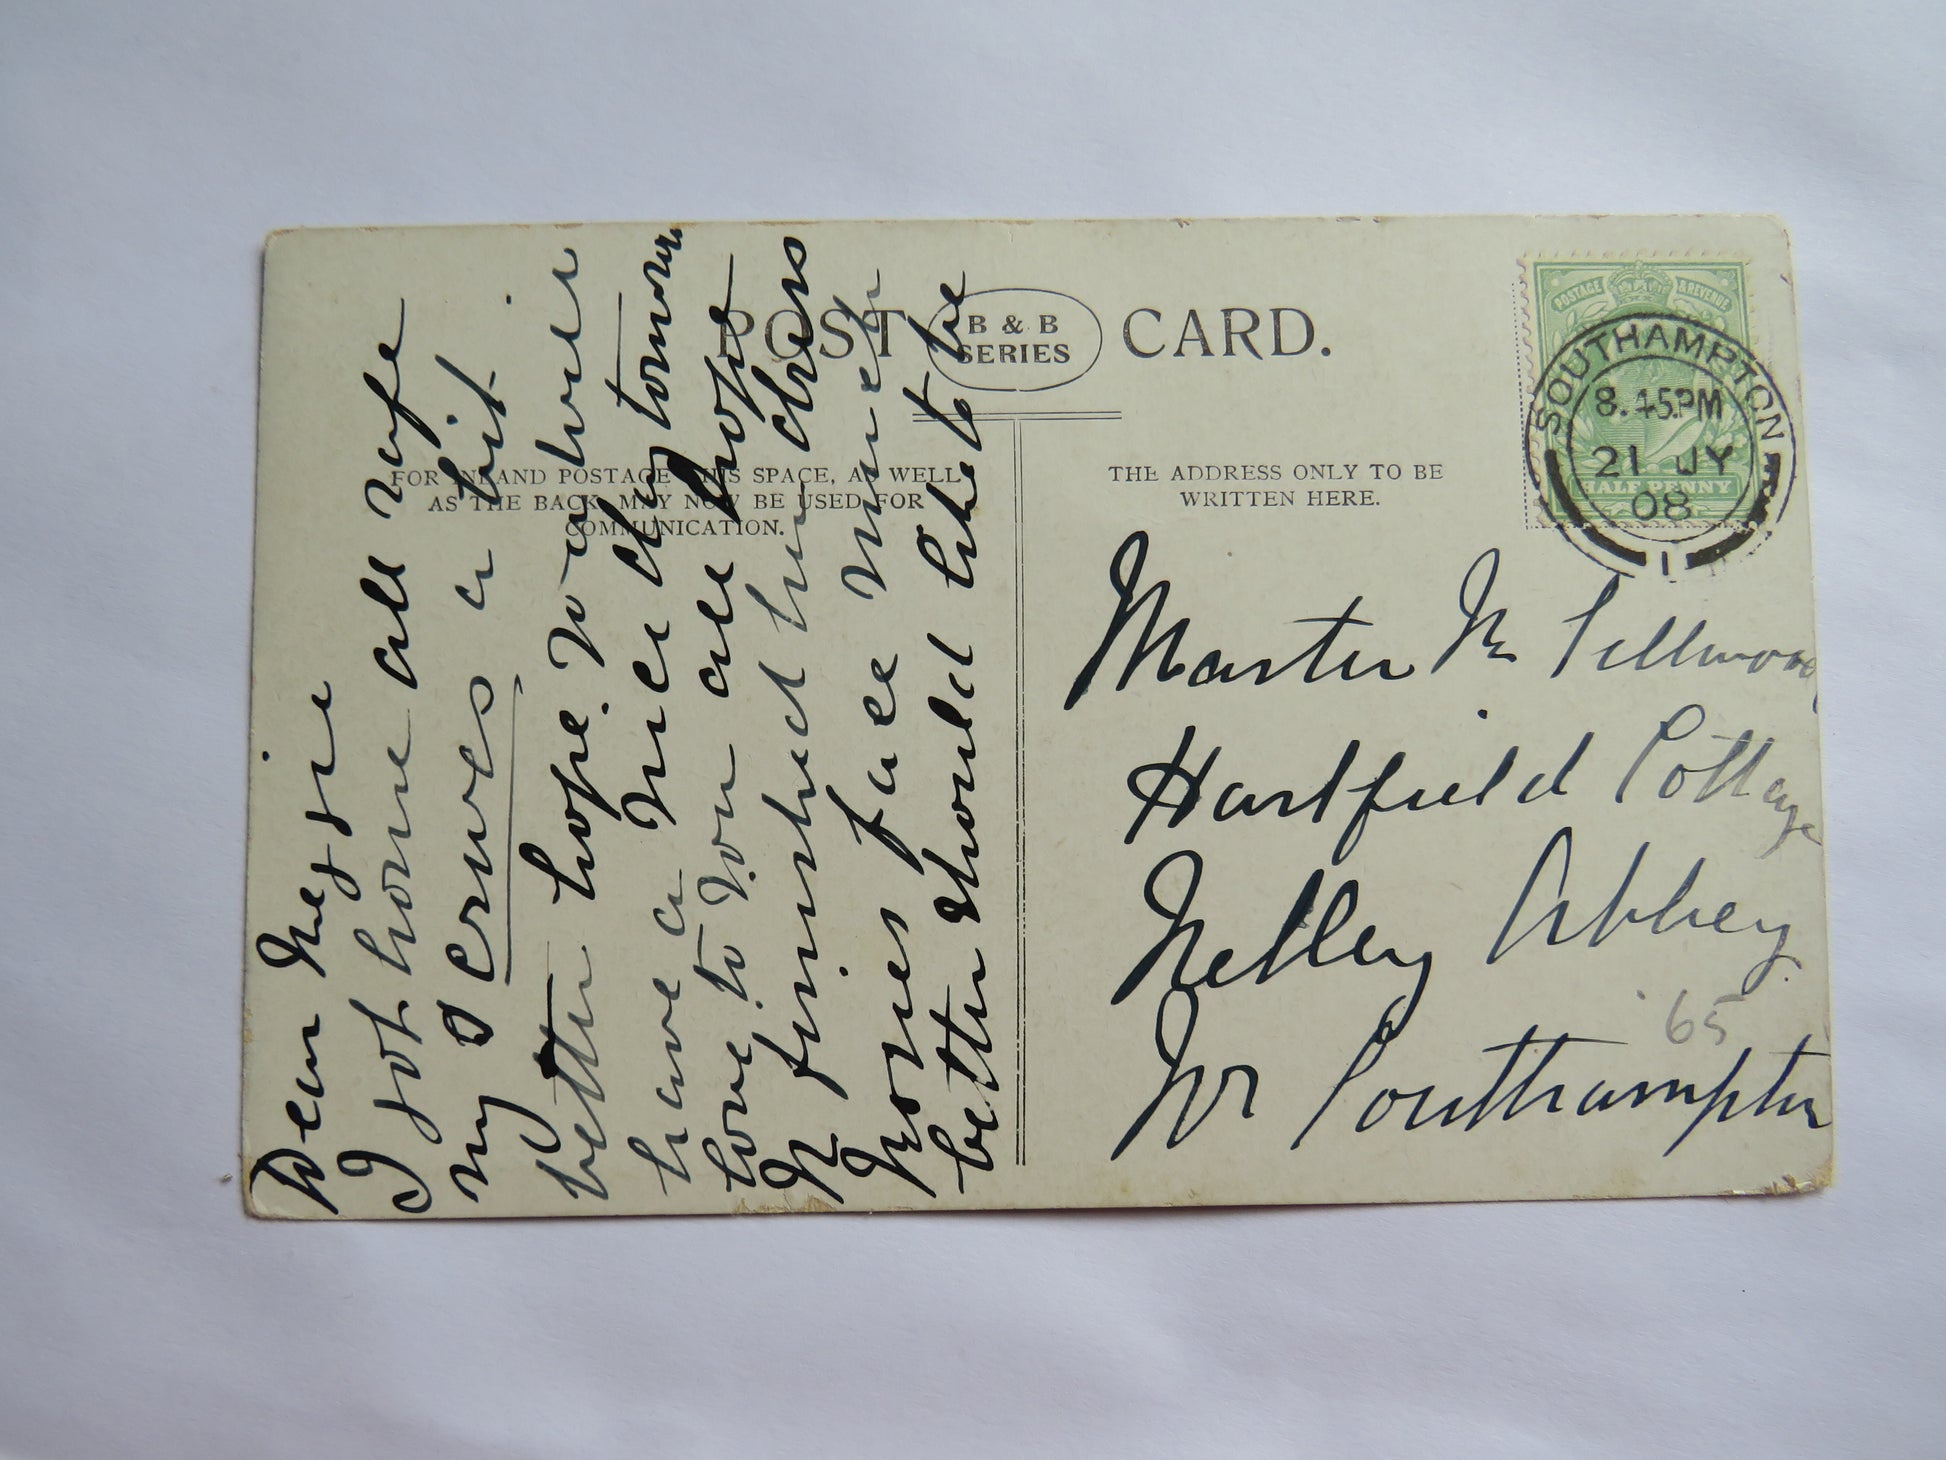 POST CARD.
B & B
SERIES
FOR INLAND POSTAGE THIS SPACE, AS WELL
AS THE BACK, MAY NOW BE USED FOR
COMMUNICATION.
THE ADDRESS ONLY TO BE
WRITTEN HERE.
POSTAGE & REVENUE
HALF PENNY
SOUTHAMPTON
8.45PM
21 JY
08
1
Dear
I got home all safe
my a bit
better hope to
have a nice day tomorrow
love to you all hope
N finished her dress
face much
better should like to be
Master N Sellwood
Hartfield Cottage
Netley Abbey
Nr Southampton
65